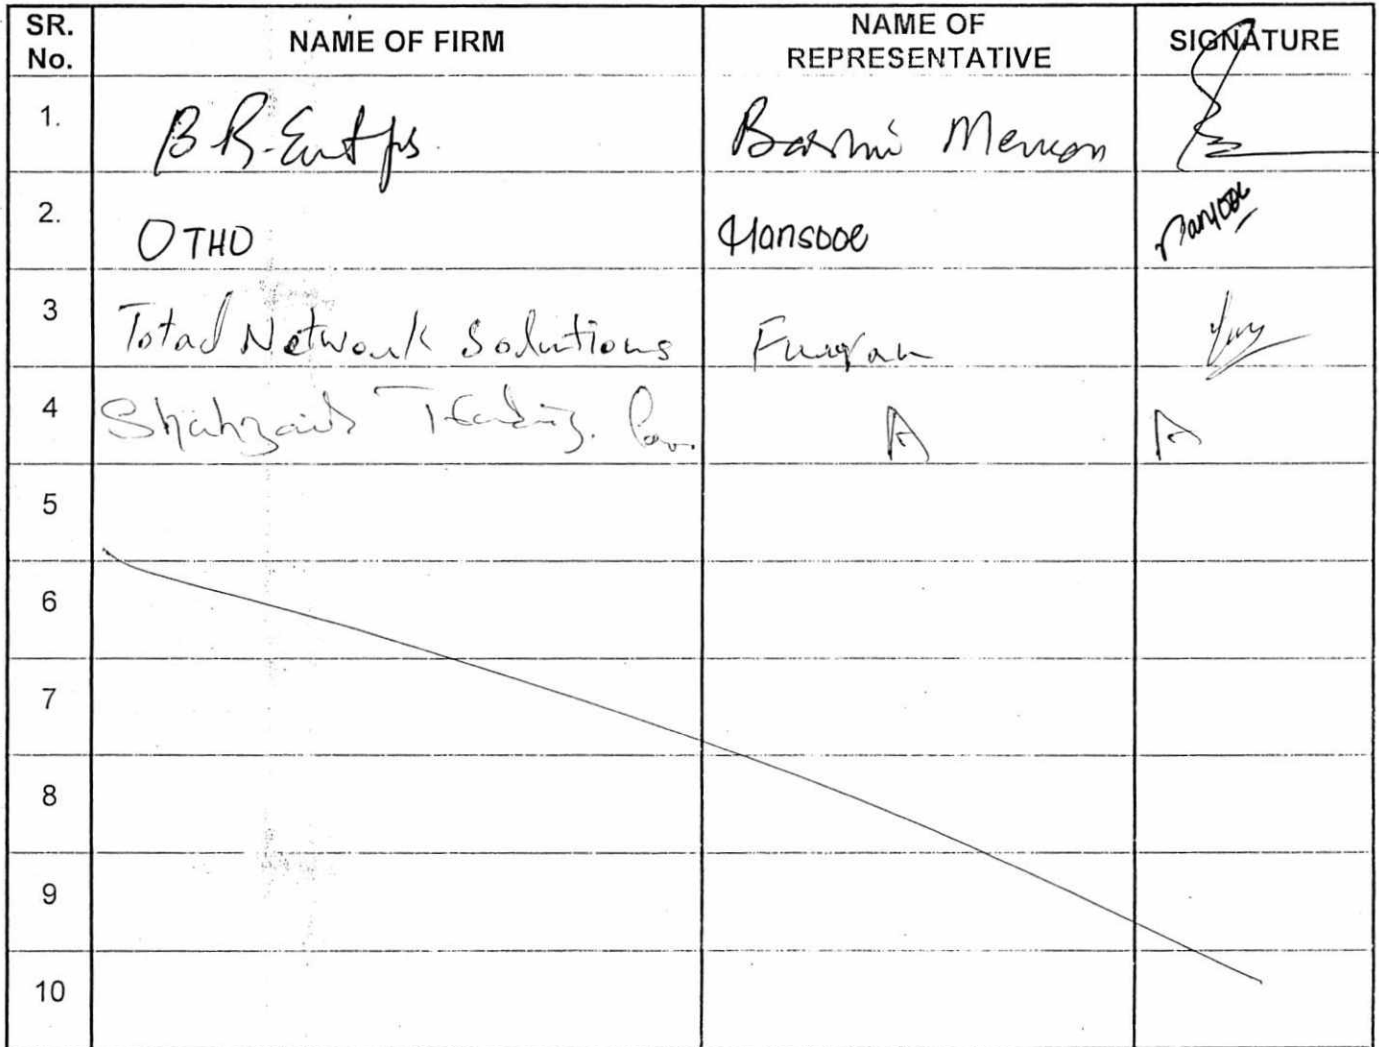 SR. No. NAME OF FIRM NAME OF REPRESENTATIVE SIGNATURE
1. B R. Entps Memon
2. OTHO
3 Total Network Solutions Furqan
4 Shahzaib Trading. A A
5
6
7
8
9
10